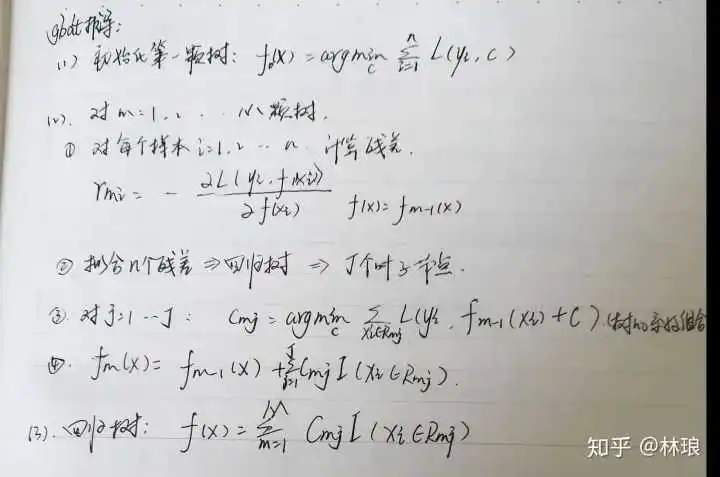 gbdt推导:
(1) 初始化第一颗树: f₀(x) = argmin_c Σ_{i=1}^{n} L(yi, c)
(2). 对 m=1, 2, ... M颗树.
① 对每个样本 i=1, 2 ... n 计算残差.
r_mi = - ∂L(yi, f(xi)) / ∂f(xi)  f(x) = f_{m-1}(x)
② 拟合n个残差 ⇒ 回归树 ⇒ J个叶子节点.
③. 对 j=1 ... J: C_mj = argmin_c Σ_{xi∈Rmj} L(yi, f_{m-1}(xi) + C).
④. f_m(x) = f_{m-1}(x) + Σ_{j=1}^{J} C_mj I(xi∈Rmj).
(3). 回归树: f(x) = Σ_{m=1}^{M} C_mj I(xi∈Rmj)
知乎 @林琅